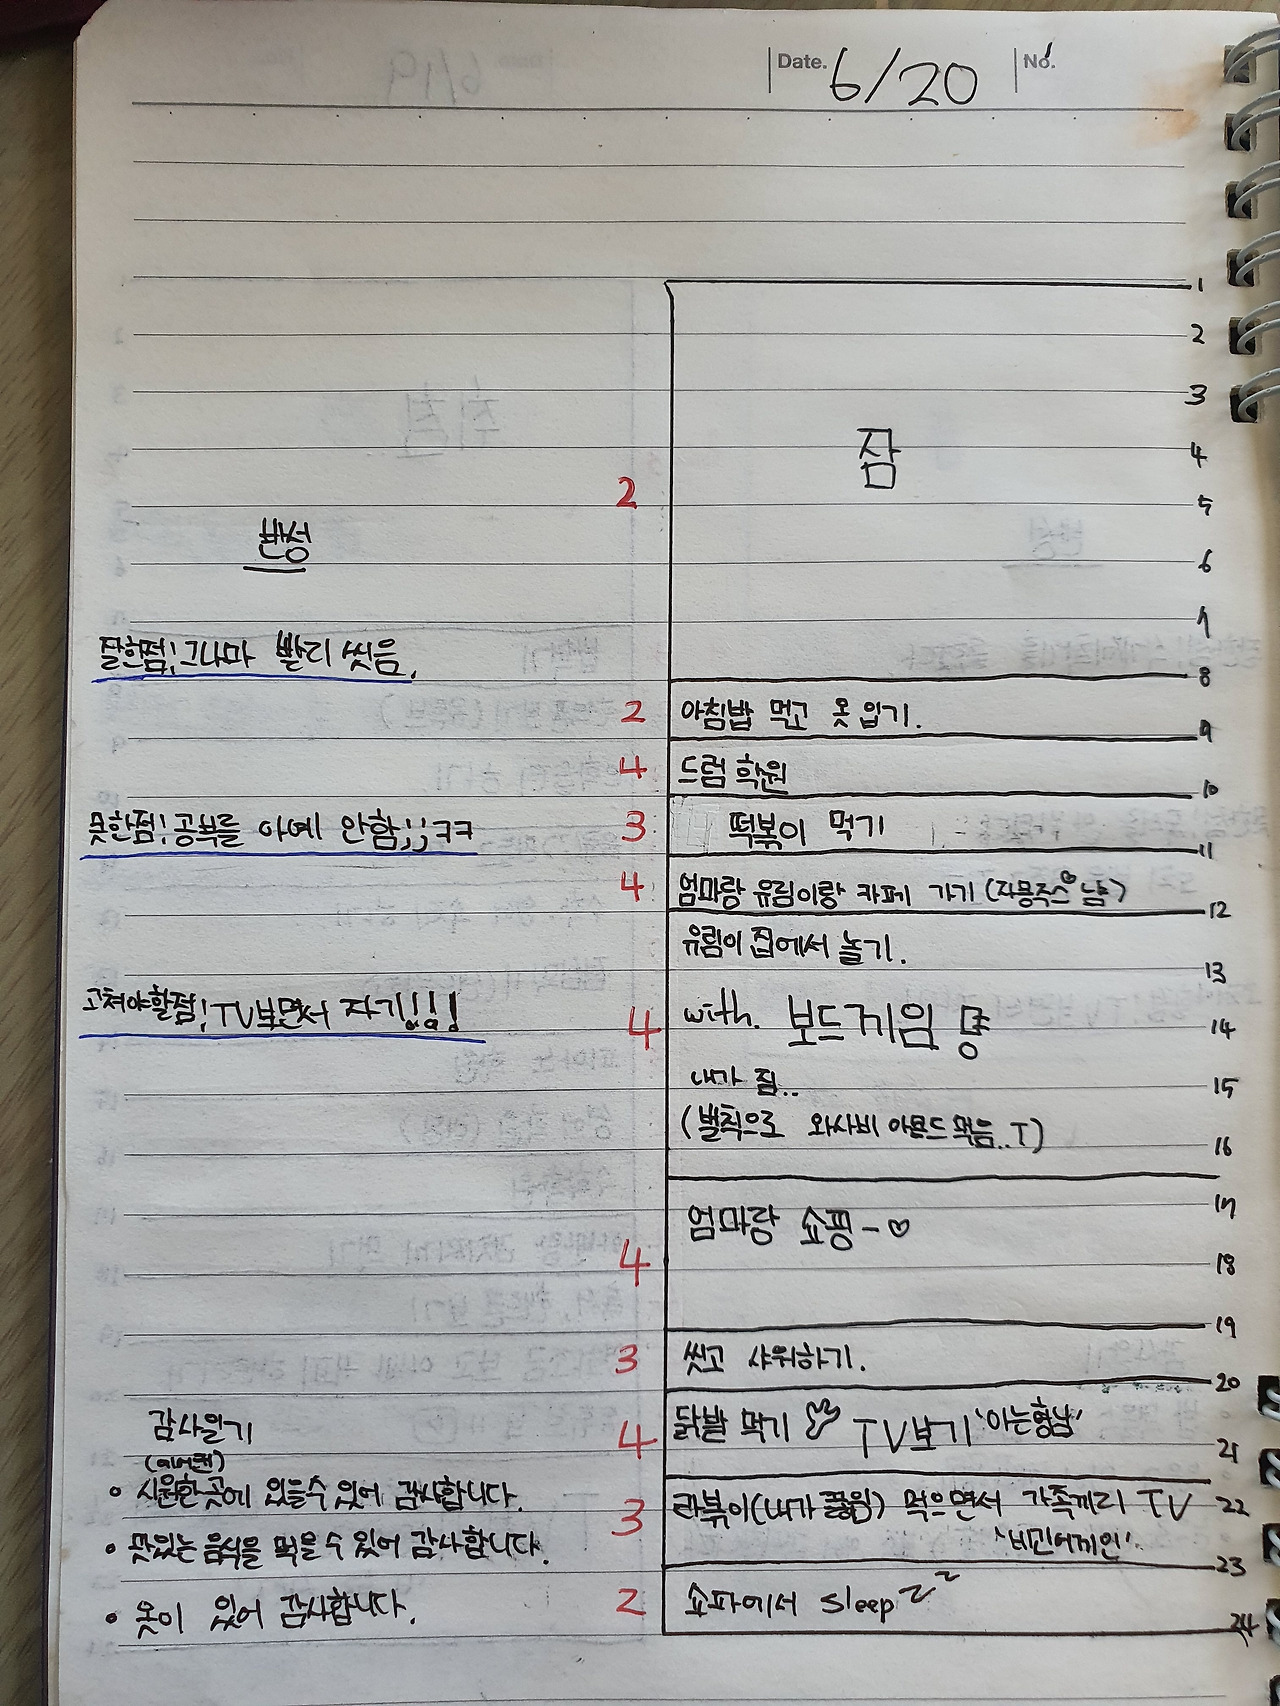 Date. 6/20 No.
1
2
3
잠
4
2
5
반성
6
7
잘한점! 그나마 빨리 씻음.
8
2 아침밥 먹고 옷 입기.
9
4 드럼 학원
10
못한점! 공부를 아예 안함;;ㅋㅋ
3 떡볶이 먹기
11
4 엄마랑 유림이랑 카페 가기 (자몽주스♡냠)
12
유림이 집에서 놀기.
13
고쳐야할점! TV보면서 자기!!!
4 with. 보드게임
14
내가 짐..
15
(벌칙으로 와사비 아몬드 먹음..T)
16
17
엄마랑 쇼핑-♡
4
18
19
3 씻고 샤워하기.
20
감사일기
4 닭발 먹기 TV보기 '아는형님'
21
(에어컨)
• 시원한 곳에 있을 수 있어 감사합니다.
3 라볶이(내가 끓임) 먹으면서 가족끼리 TV
22
• 맛있는 음식을 먹을 수 있어 감사합니다.
'비긴어게인'.
23
• 옷이 있어 감사합니다.
2 쇼파에서 sleep zz
24